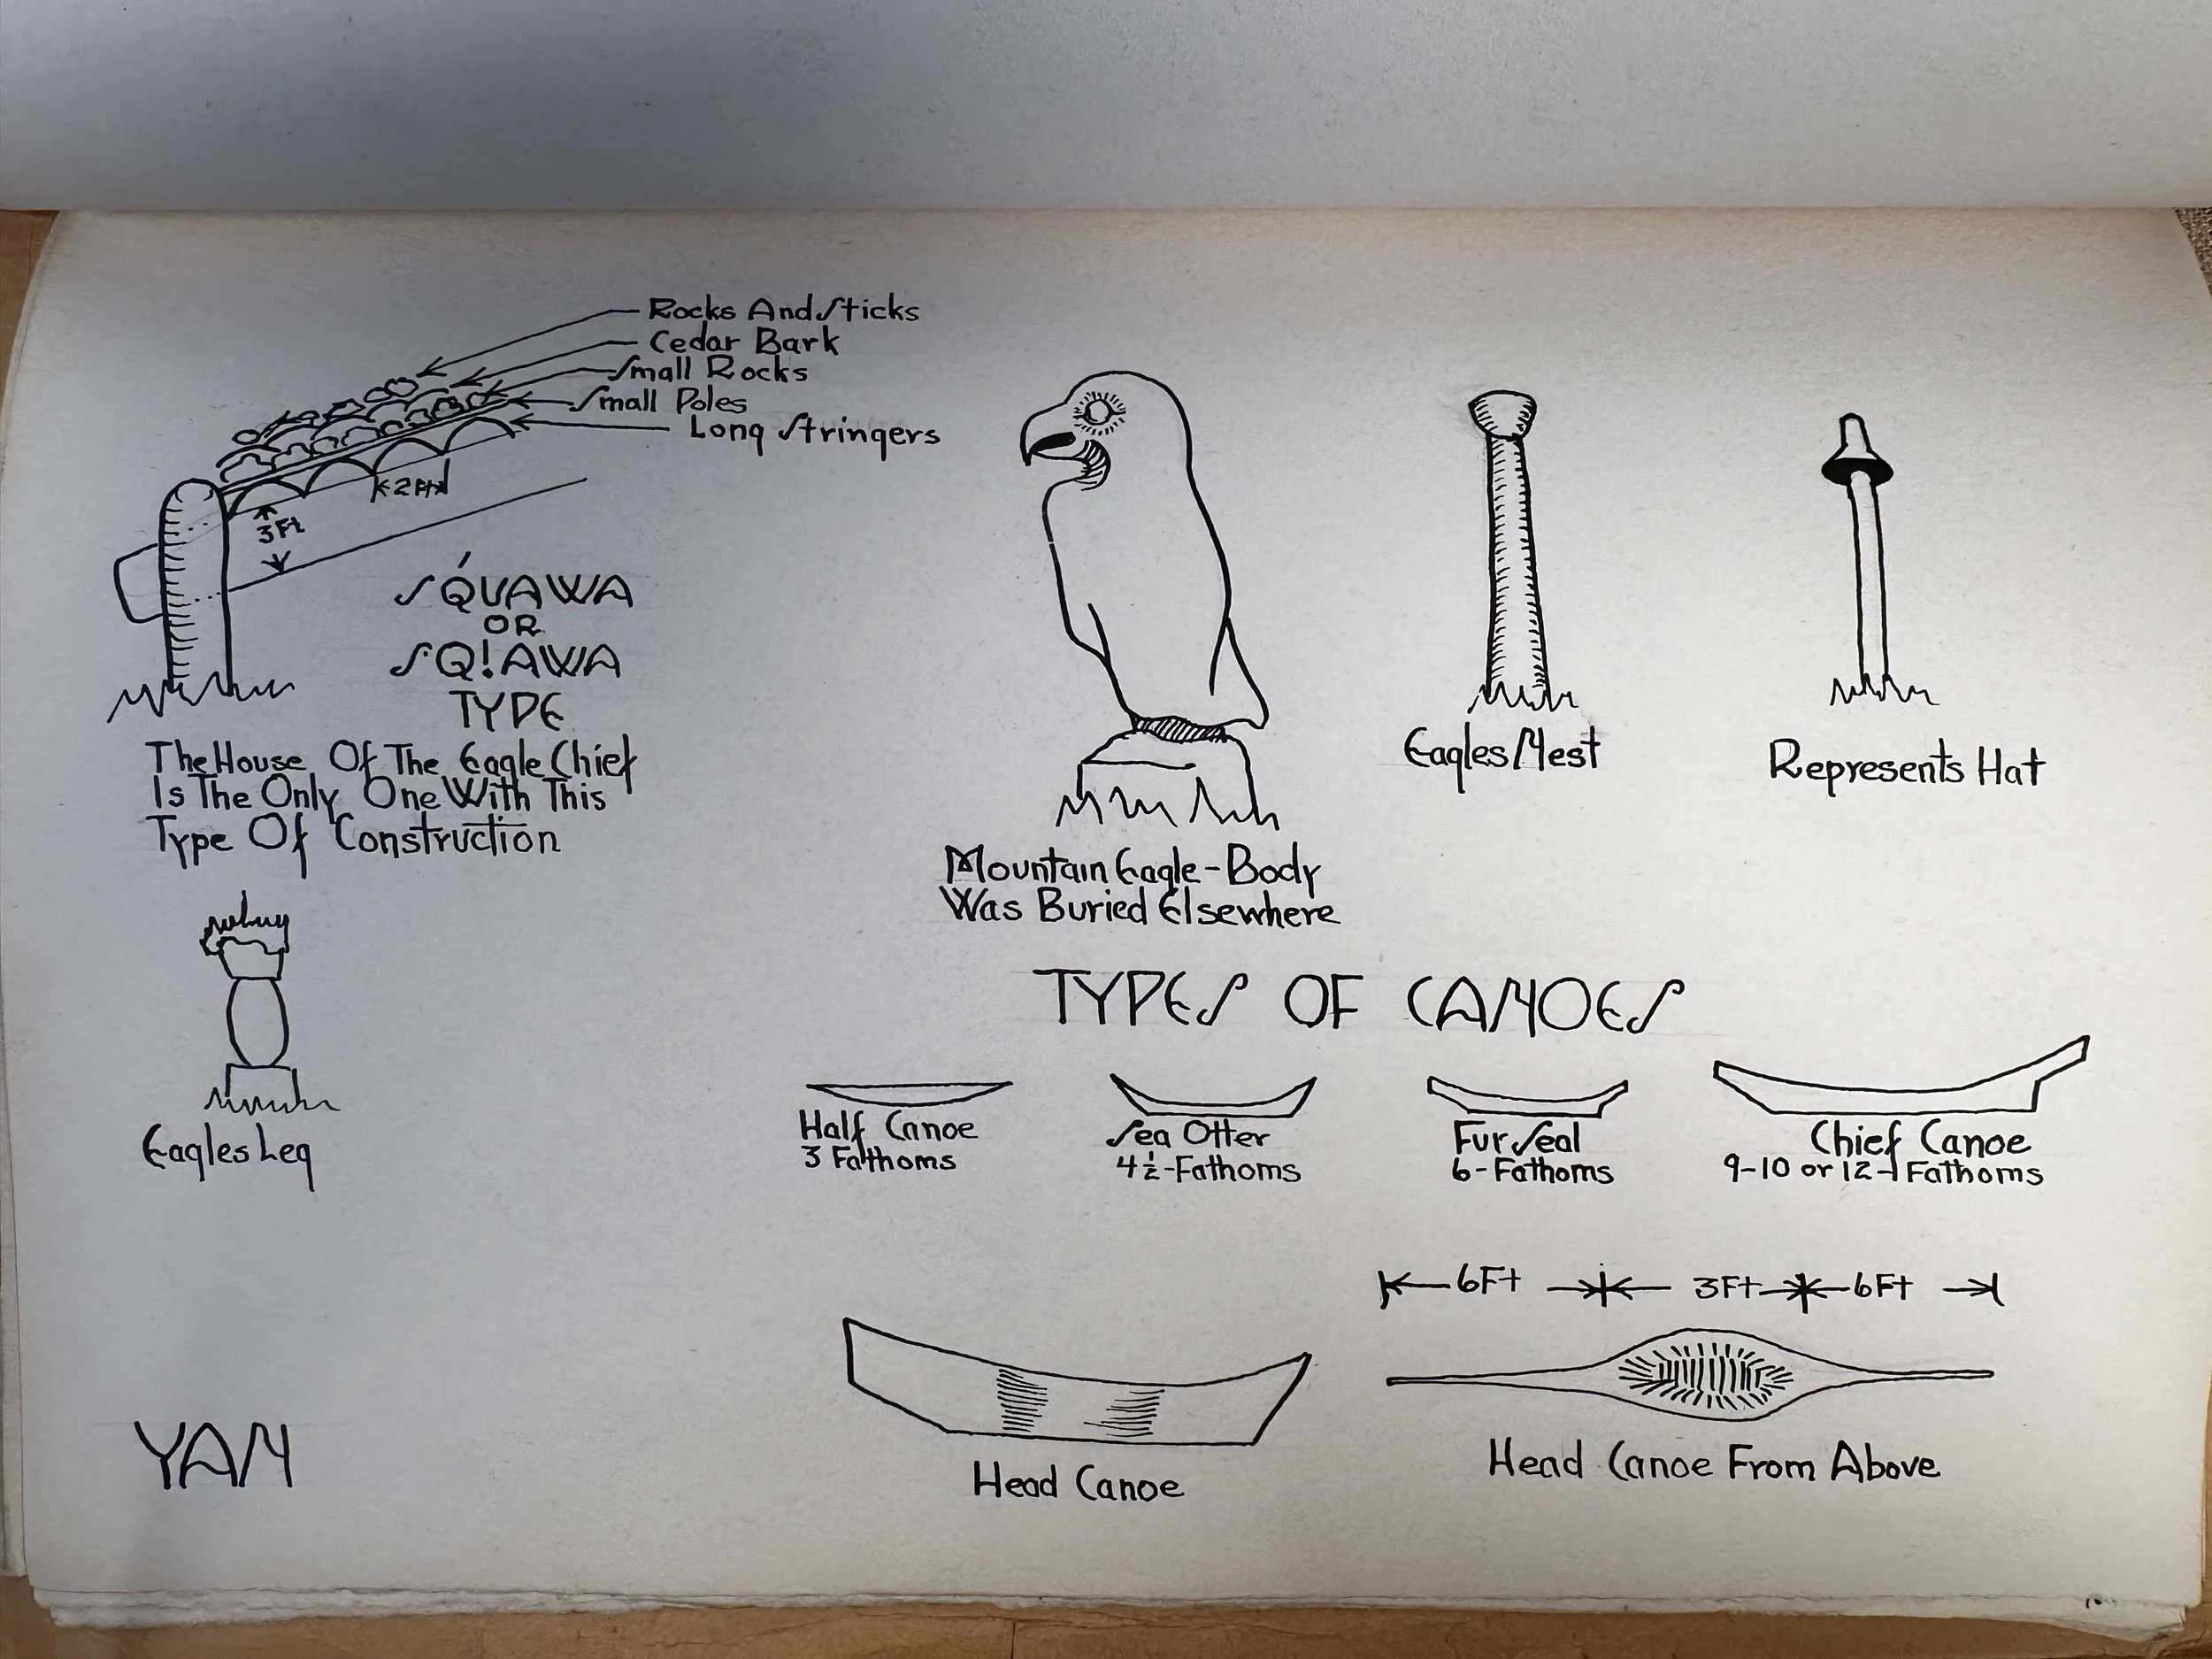 Rocks And Sticks
Cedar Bark
Small Rocks
Small Poles
Long Stringers
2 Ft
3 Ft
SQ́UAWA
OR
SQ!AWA
TYPE
The House Of The Eagle Chief
Is The Only One With This
Type Of Construction
Mountain Eagle-Body
Was Buried Elsewhere
Eagles Nest
Represents Hat
Eagles Leg
TYPES OF CANOES
Half Canoe
3 Fathoms
Sea Otter
4½-Fathoms
Fur Seal
6-Fathoms
Chief Canoe
9-10 or 12-Fathoms
6Ft 3Ft 6Ft
Head Canoe
Head Canoe From Above
YAN